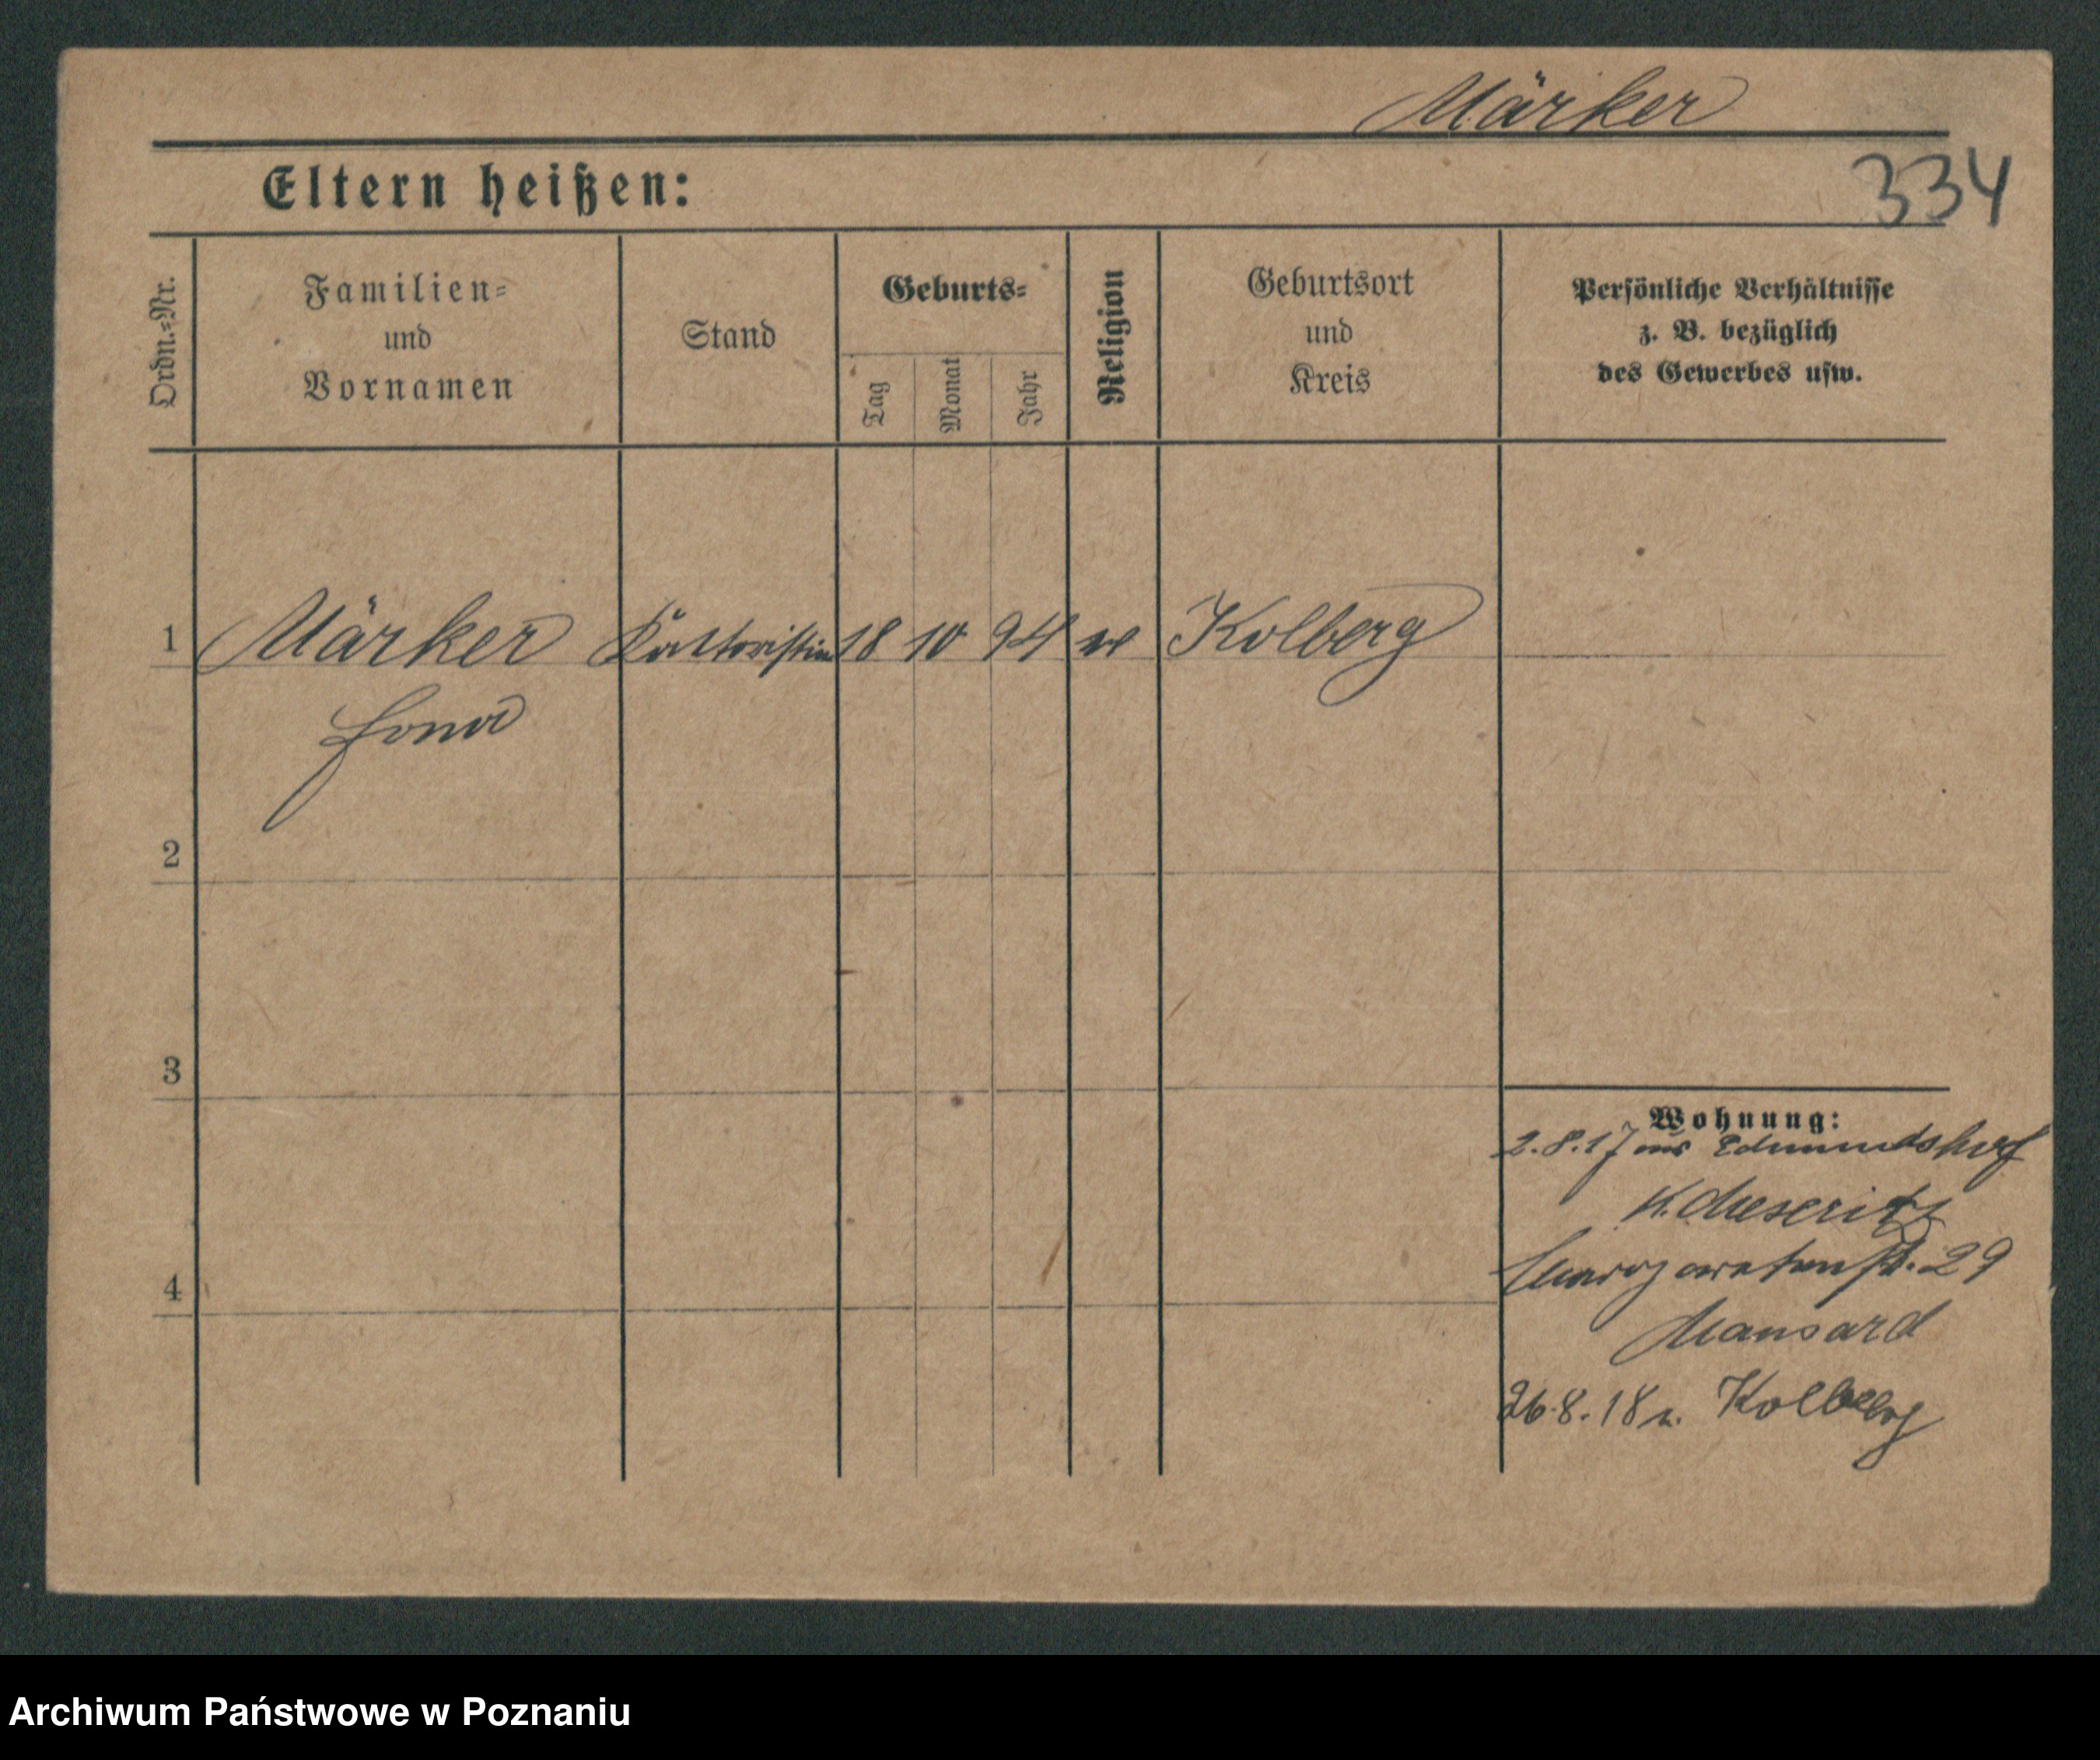 Märker
Eltern heißen:
334
Ordn.=Nr.
Familien=
und
Vornamen
Stand
Geburts=
Tag
Monat
Jahr
Religion
Geburtsort
und
Kreis
Persönliche Verhältnisse
z. B. bezüglich
des Gewerbes usw.
1 Märker 18 10 94 Kolberg
2
3
4
Wohnung:
2.8.17 aus Edmundshof
K. Meseritz
Margaretenstr. 29
Mansard
26.8.18 n. Kolberg
Archiwum Państwowe w Poznaniu